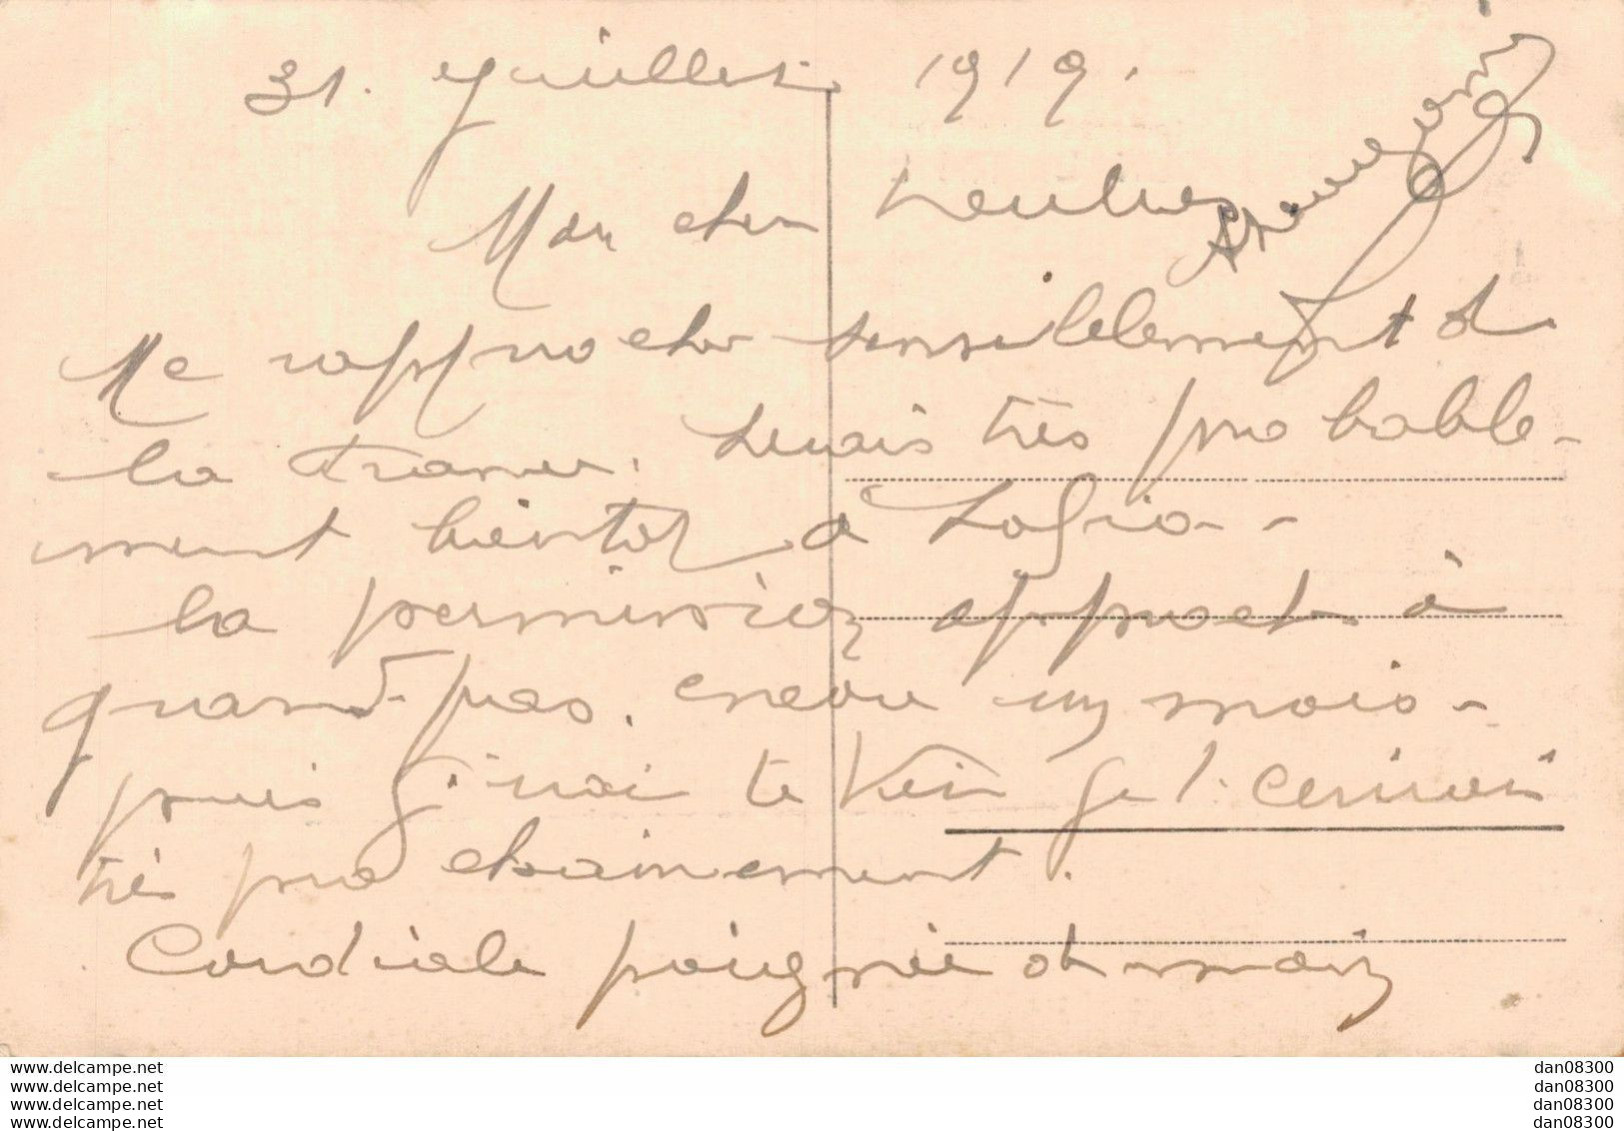 31. Juillet 1919.
Mon cher
Me rapprocher sensiblement de
la France. serais très probable-
ment bientôt à Sofia -
la permission approche à
grand-pas. encore un mois -
puis j'irai te Voir. Je t'écrirai
très prochainement.
Cordiale poignée de main
dan08300
dan08300
dan08300
dan08300
www.delcampe.net
www.delcampe.net
www.delcampe.net
www.delcampe.net